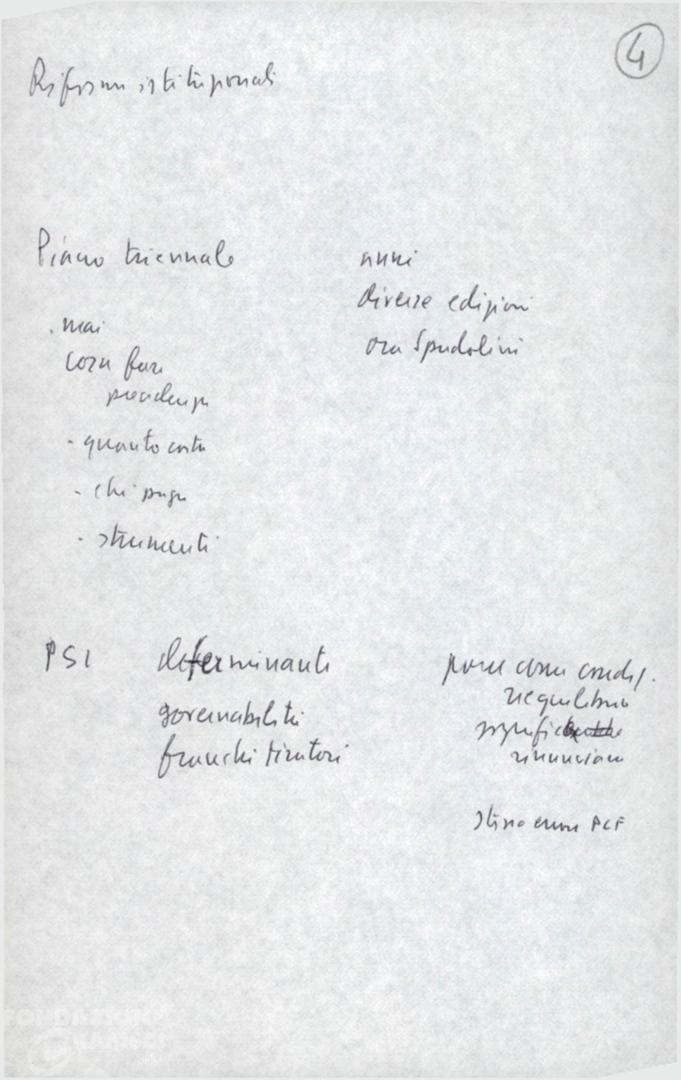 4
Riforme istituzionali
Piano triennale
anni
diverse edizioni
ora Spadolini
. mai
cosa fare
precedenza
- quanto costa
- chi paga
- strumenti
PSI
determinante
governabilità
franchi tiratori
porre come condiz.
riequilibrio
significa
rinunciare
PCF
FONDAZIONE
GRAMSCI